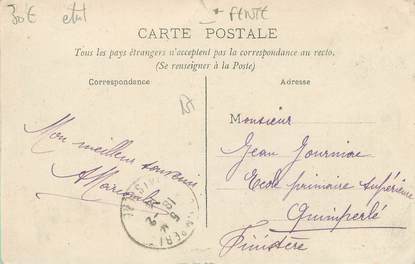 30€ etat * FENTE
CARTE POSTALE
Tous les pays étrangers n'acceptent pas la correspondance au recto.
(Se renseigner à la Poste)
Correspondance
Adresse
Mon meilleur souvenir
Monsieur
Jean Journiac
Ecole primaire Supérieure
Quimperlé
Finistère